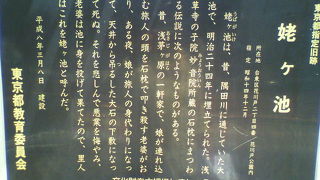 東京都指定旧跡
姥ヶ池
所在地 台東区花川戸二丁目四番 花川戸公園内
指定 昭和十四年十二月
姥ヶ池は、昔、隅田川に通じていた大
池で、明治二十四年に埋立てられた。浅
草寺の子院妙音院所蔵の石枕にまつわ
る伝説に次のようなものがある。
昔、浅茅ヶ原の一軒家で、娘が連れ込
む旅人の頭を石枕で叩き殺す老婆がお
り、ある夜、娘が旅人の身代わりになっ
て、天井から吊るした大石の下敷になっ
て死ぬ。それを悲しんで悪業を悔やみ、
老婆は池に身を投げて果てたので、里人
はこれを姥ヶ池と呼んだ。
平成八年三月八日 建設
東京都教育委員会